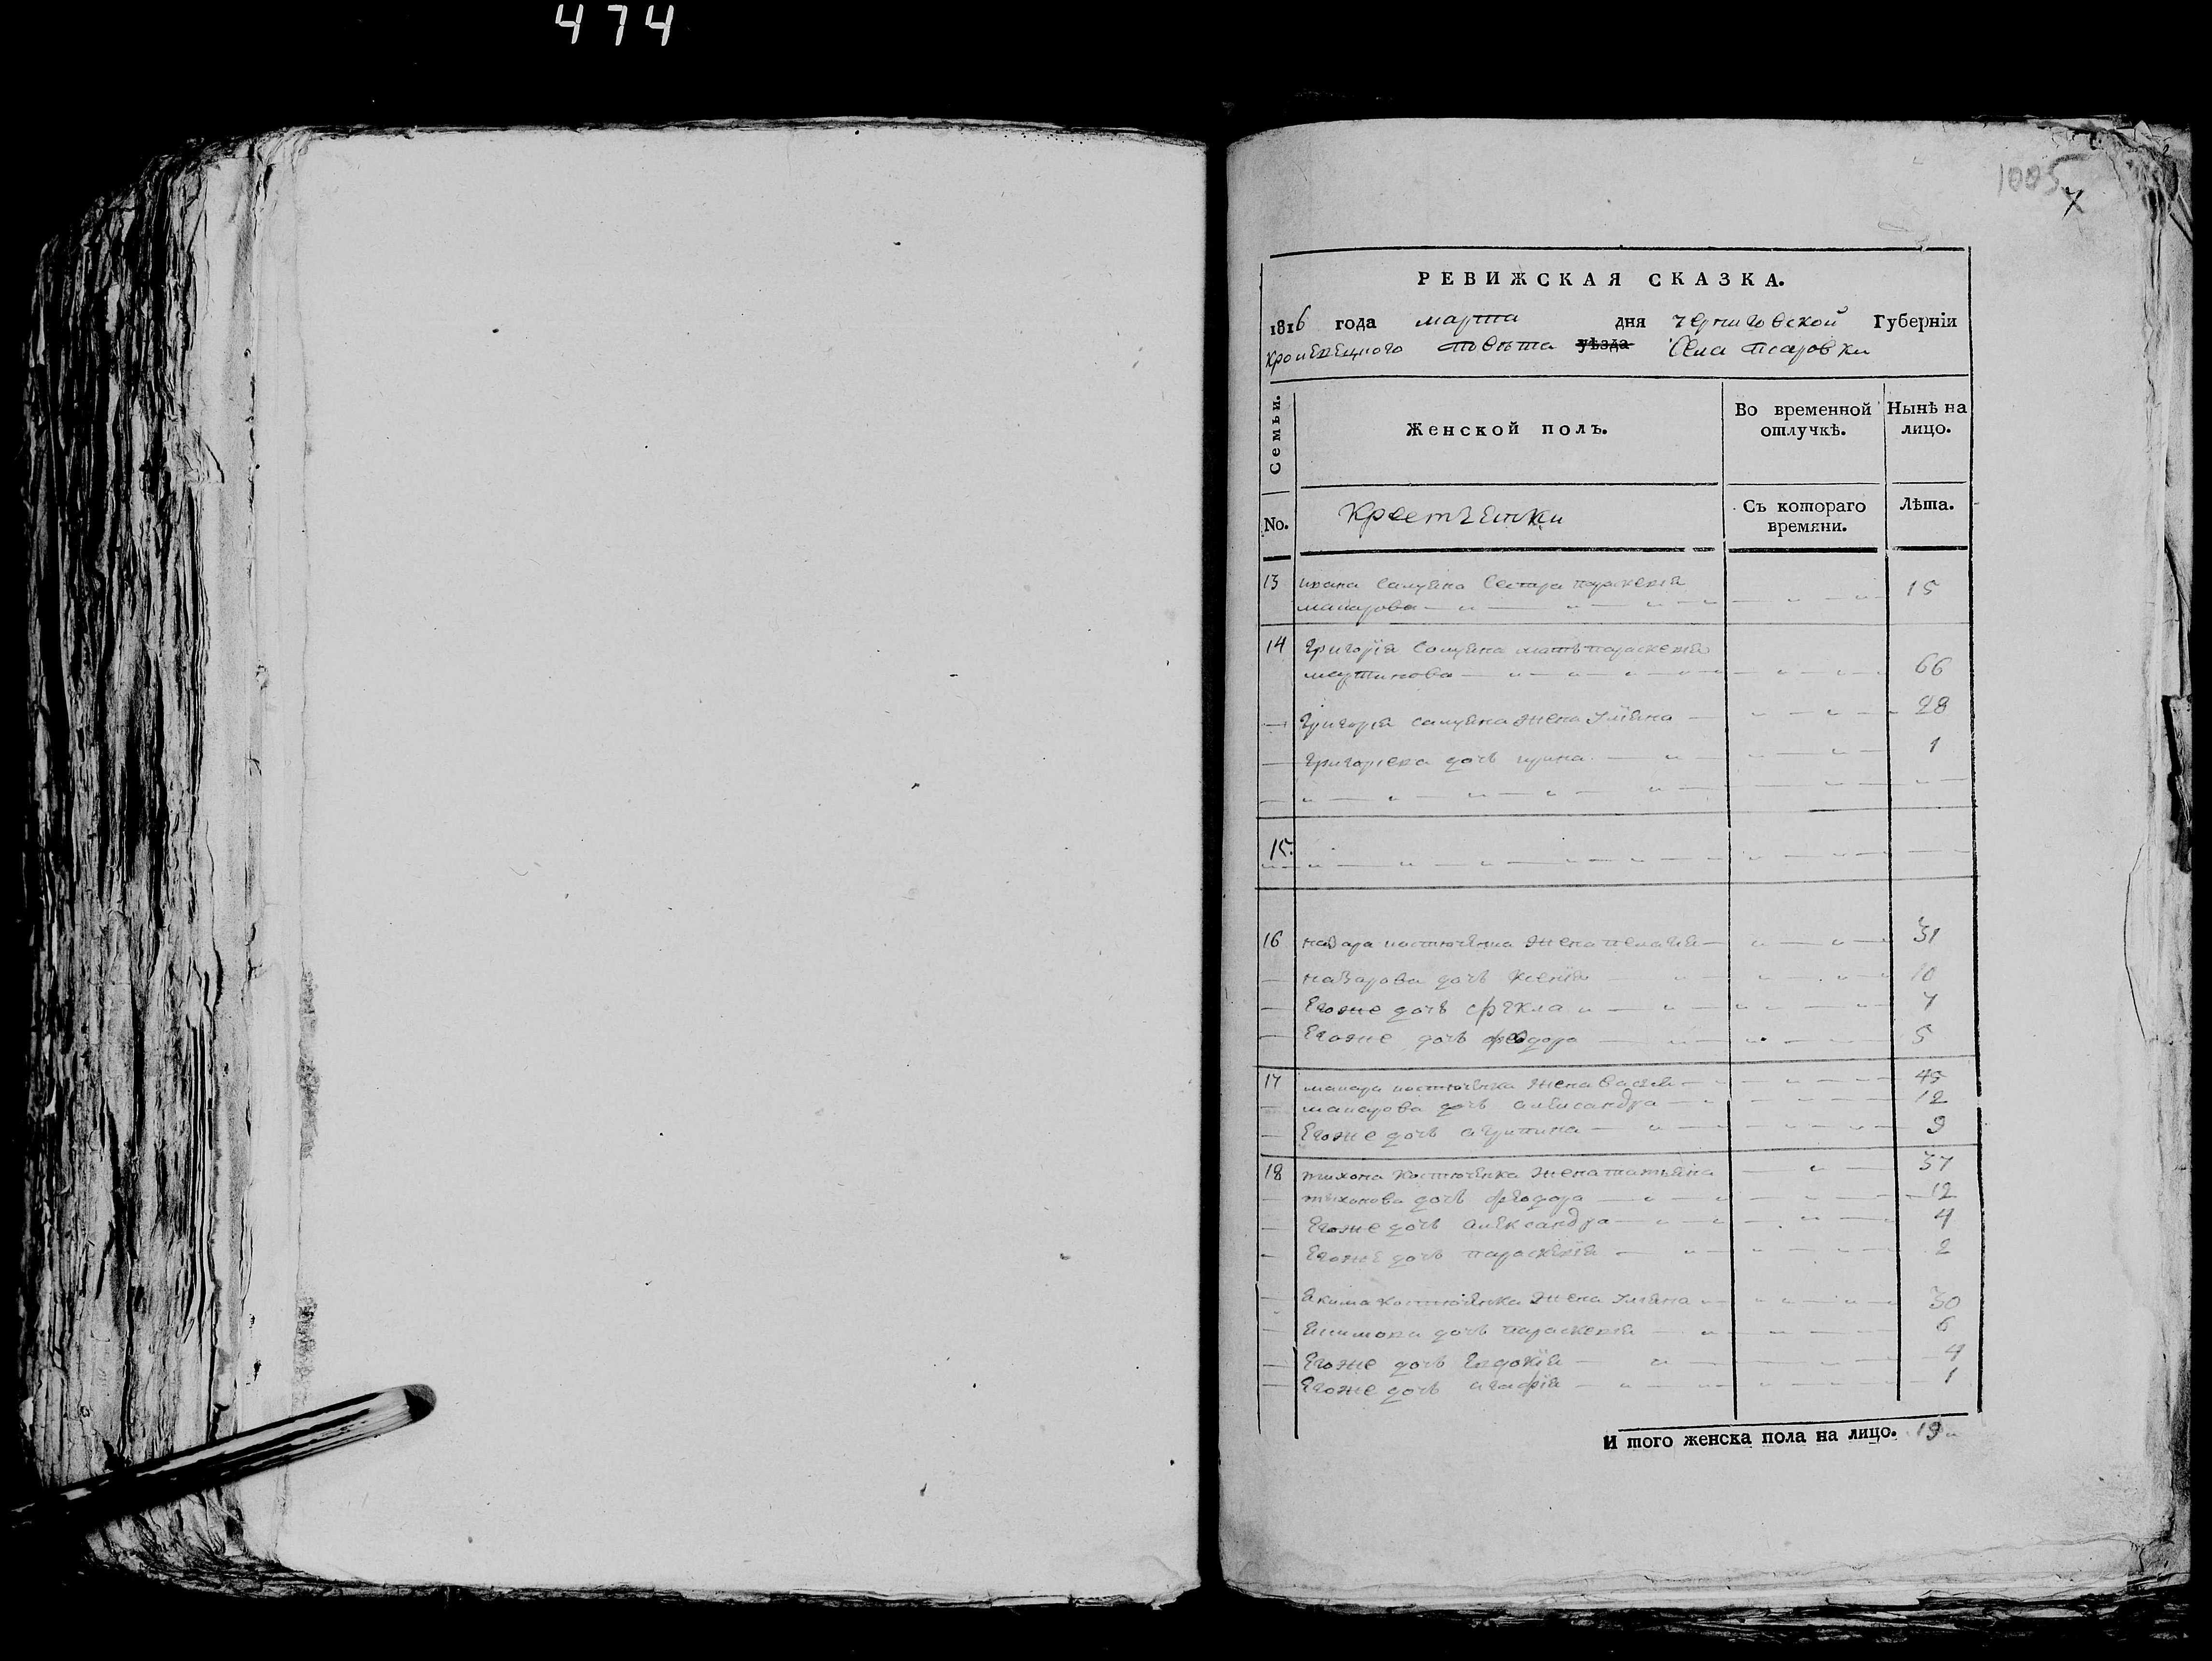 474
1005
7
РЕВИЖСКАЯ СКАЗКА.
1816 года марта дня черниговской Губерніи
кролевецкого повѣта уѣзда Села псаровки
Семьи.
Женской полъ.
Во временной отлучкѣ.
Нынѣ на лицо.
No.
Крестьянки
Съ котораго времяни.
Лѣта.
13 ивана сестра параскевія
макарова 15
14 Григорія мать параскевія
мартинова 66
Григорія жена Уліяна 28
Григориева дочь ирина 1
15.
16 назара костюченка жена пелагія 31
назарова дочь ксенія 10
Егоже дочь фекла 7
Егоже дочь феодора 5
17 макара костюченка жена 45
макарова дочь александра 12
Егоже дочь агрипина 9
18 тихона костюченка жена татьяна 37
тихонова дочь феодора 12
Егоже дочь александра 4
Егоже дочь параскевія 2
Якима костюченка жена Уляна 30
Якимова дочь параскевія 6
Егоже дочь Евдокія 4
Егоже дочь агафія 1
И того женска пола на лицо. 19